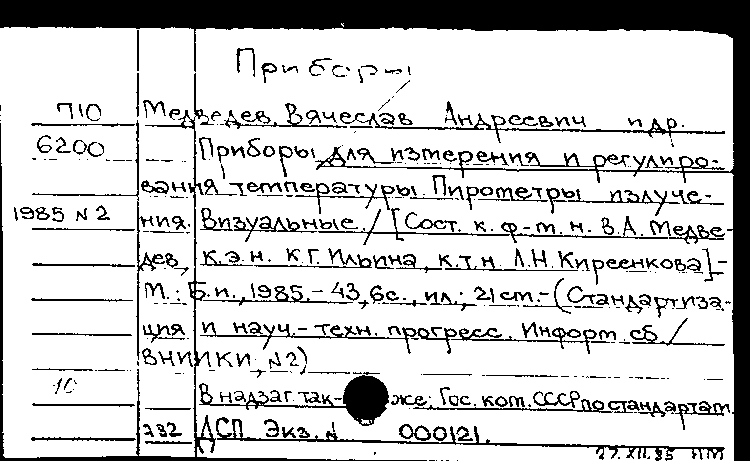 Приборы
П10 Медведев, Вячеслав Андреевич и др.
6200 Приборы для измерения и регулиро-
вания температуры. Пирометры излуче-
1985 N 2 ния. Визуальные. / [Сост. к. ф-м. н. В.А. Медве-
дев, к.э.н. К.Г. Ильина, к.т.н. Л.Н. Киреенкова] -
М.: Б.и., 1985. - 43,6с., ил.; 21см. - (Стандартиза-
ция и науч.-техн. прогресс. Информ сб. /
ВНИИКИ, N2)
10 В надзаг. так-же: Гос. ком. СССР по стандартам.
732 ДСП Экз. N 000121.
27.XII.85 ПМ